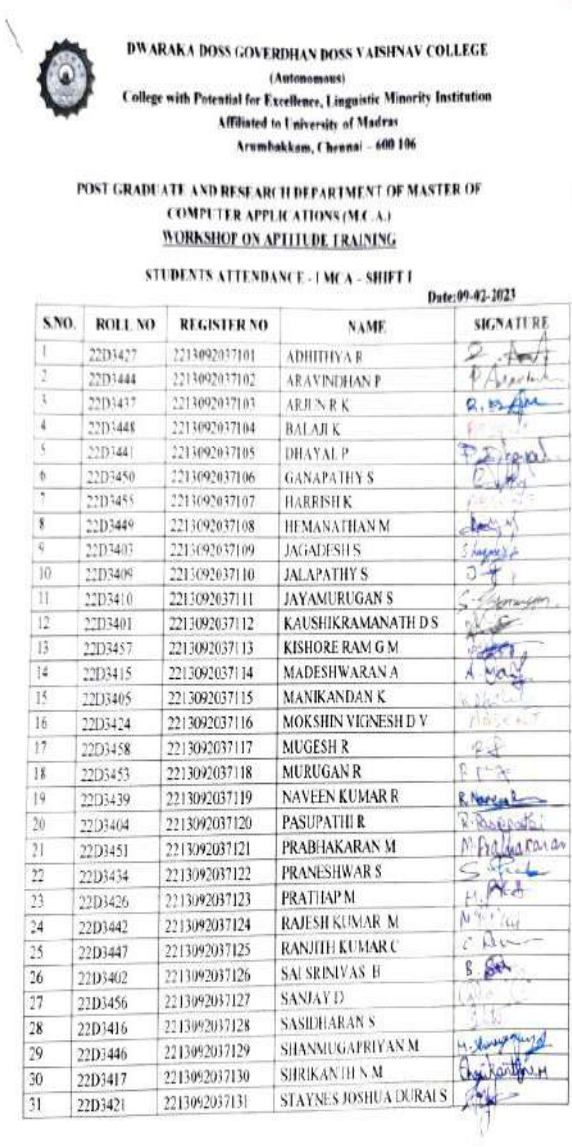 DWARAKA DOSS GOVERDHAN DOSS VAISHNAV COLLEGE
(Autonomous)
College with Potential for Excellence, Linguistic Minority Institution
Affiliated to University of Madras
Arumbakkam, Chennai – 600 106
POST GRADUATE AND RESEARCH DEPARTMENT OF MASTER OF
COMPUTER APPLICATIONS (M.C.A.)
WORKSHOP ON APTITUDE TRAINING
STUDENTS ATTENDANCE - I MCA - SHIFT I
Date:09-02-2023
S.NO. ROLL NO REGISTER NO NAME SIGNATURE
1 22D3427 2213092037101 ADHITHYA R
2 22D3444 2213092037102 ARAVINDHAN P
3 22D3437 2213092037103 ARJUN R K
4 22D3448 2213092037104 BALAJI K
5 22D3441 2213092037105 DHAYAL P
6 22D3450 2213092037106 GANAPATHY S
7 22D3455 2213092037107 HARRISH K
8 22D3449 2213092037108 HEMANATHAN M
9 22D3403 2213092037109 JAGADESH S
10 22D3409 2213092037110 JALAPATHY S
11 22D3410 2213092037111 JAYAMURUGAN S
12 22D3401 2213092037112 KAUSHIKRAMANATH D S
13 22D3457 2213092037113 KISHORE RAM G M
14 22D3415 2213092037114 MADESHWARAN A
15 22D3405 2213092037115 MANIKANDAN K
16 22D3424 2213092037116 MOKSHIN VIGNESH D V ABSENT
17 22D3458 2213092037117 MUGESH R
18 22D3453 2213092037118 MURUGAN R
19 22D3439 2213092037119 NAVEEN KUMAR R
20 22D3404 2213092037120 PASUPATHI R R. Pasupathi
21 22D3451 2213092037121 PRABHAKARAN M M. Prabhakaran
22 22D3434 2213092037122 PRANESHWAR S
23 22D3426 2213092037123 PRATHAP M
24 22D3442 2213092037124 RAJESH KUMAR M
25 22D3447 2213092037125 RANJITH KUMAR C
26 22D3402 2213092037126 SAI SRINIVAS H
27 22D3456 2213092037127 SANJAY D
28 22D3416 2213092037128 SASIDHARAN S
29 22D3446 2213092037129 SHANMUGAPRIYAN M
30 22D3417 2213092037130 SHRIKANTH N M
31 22D3421 2213092037131 STAYNES JOSHUA DURAI S